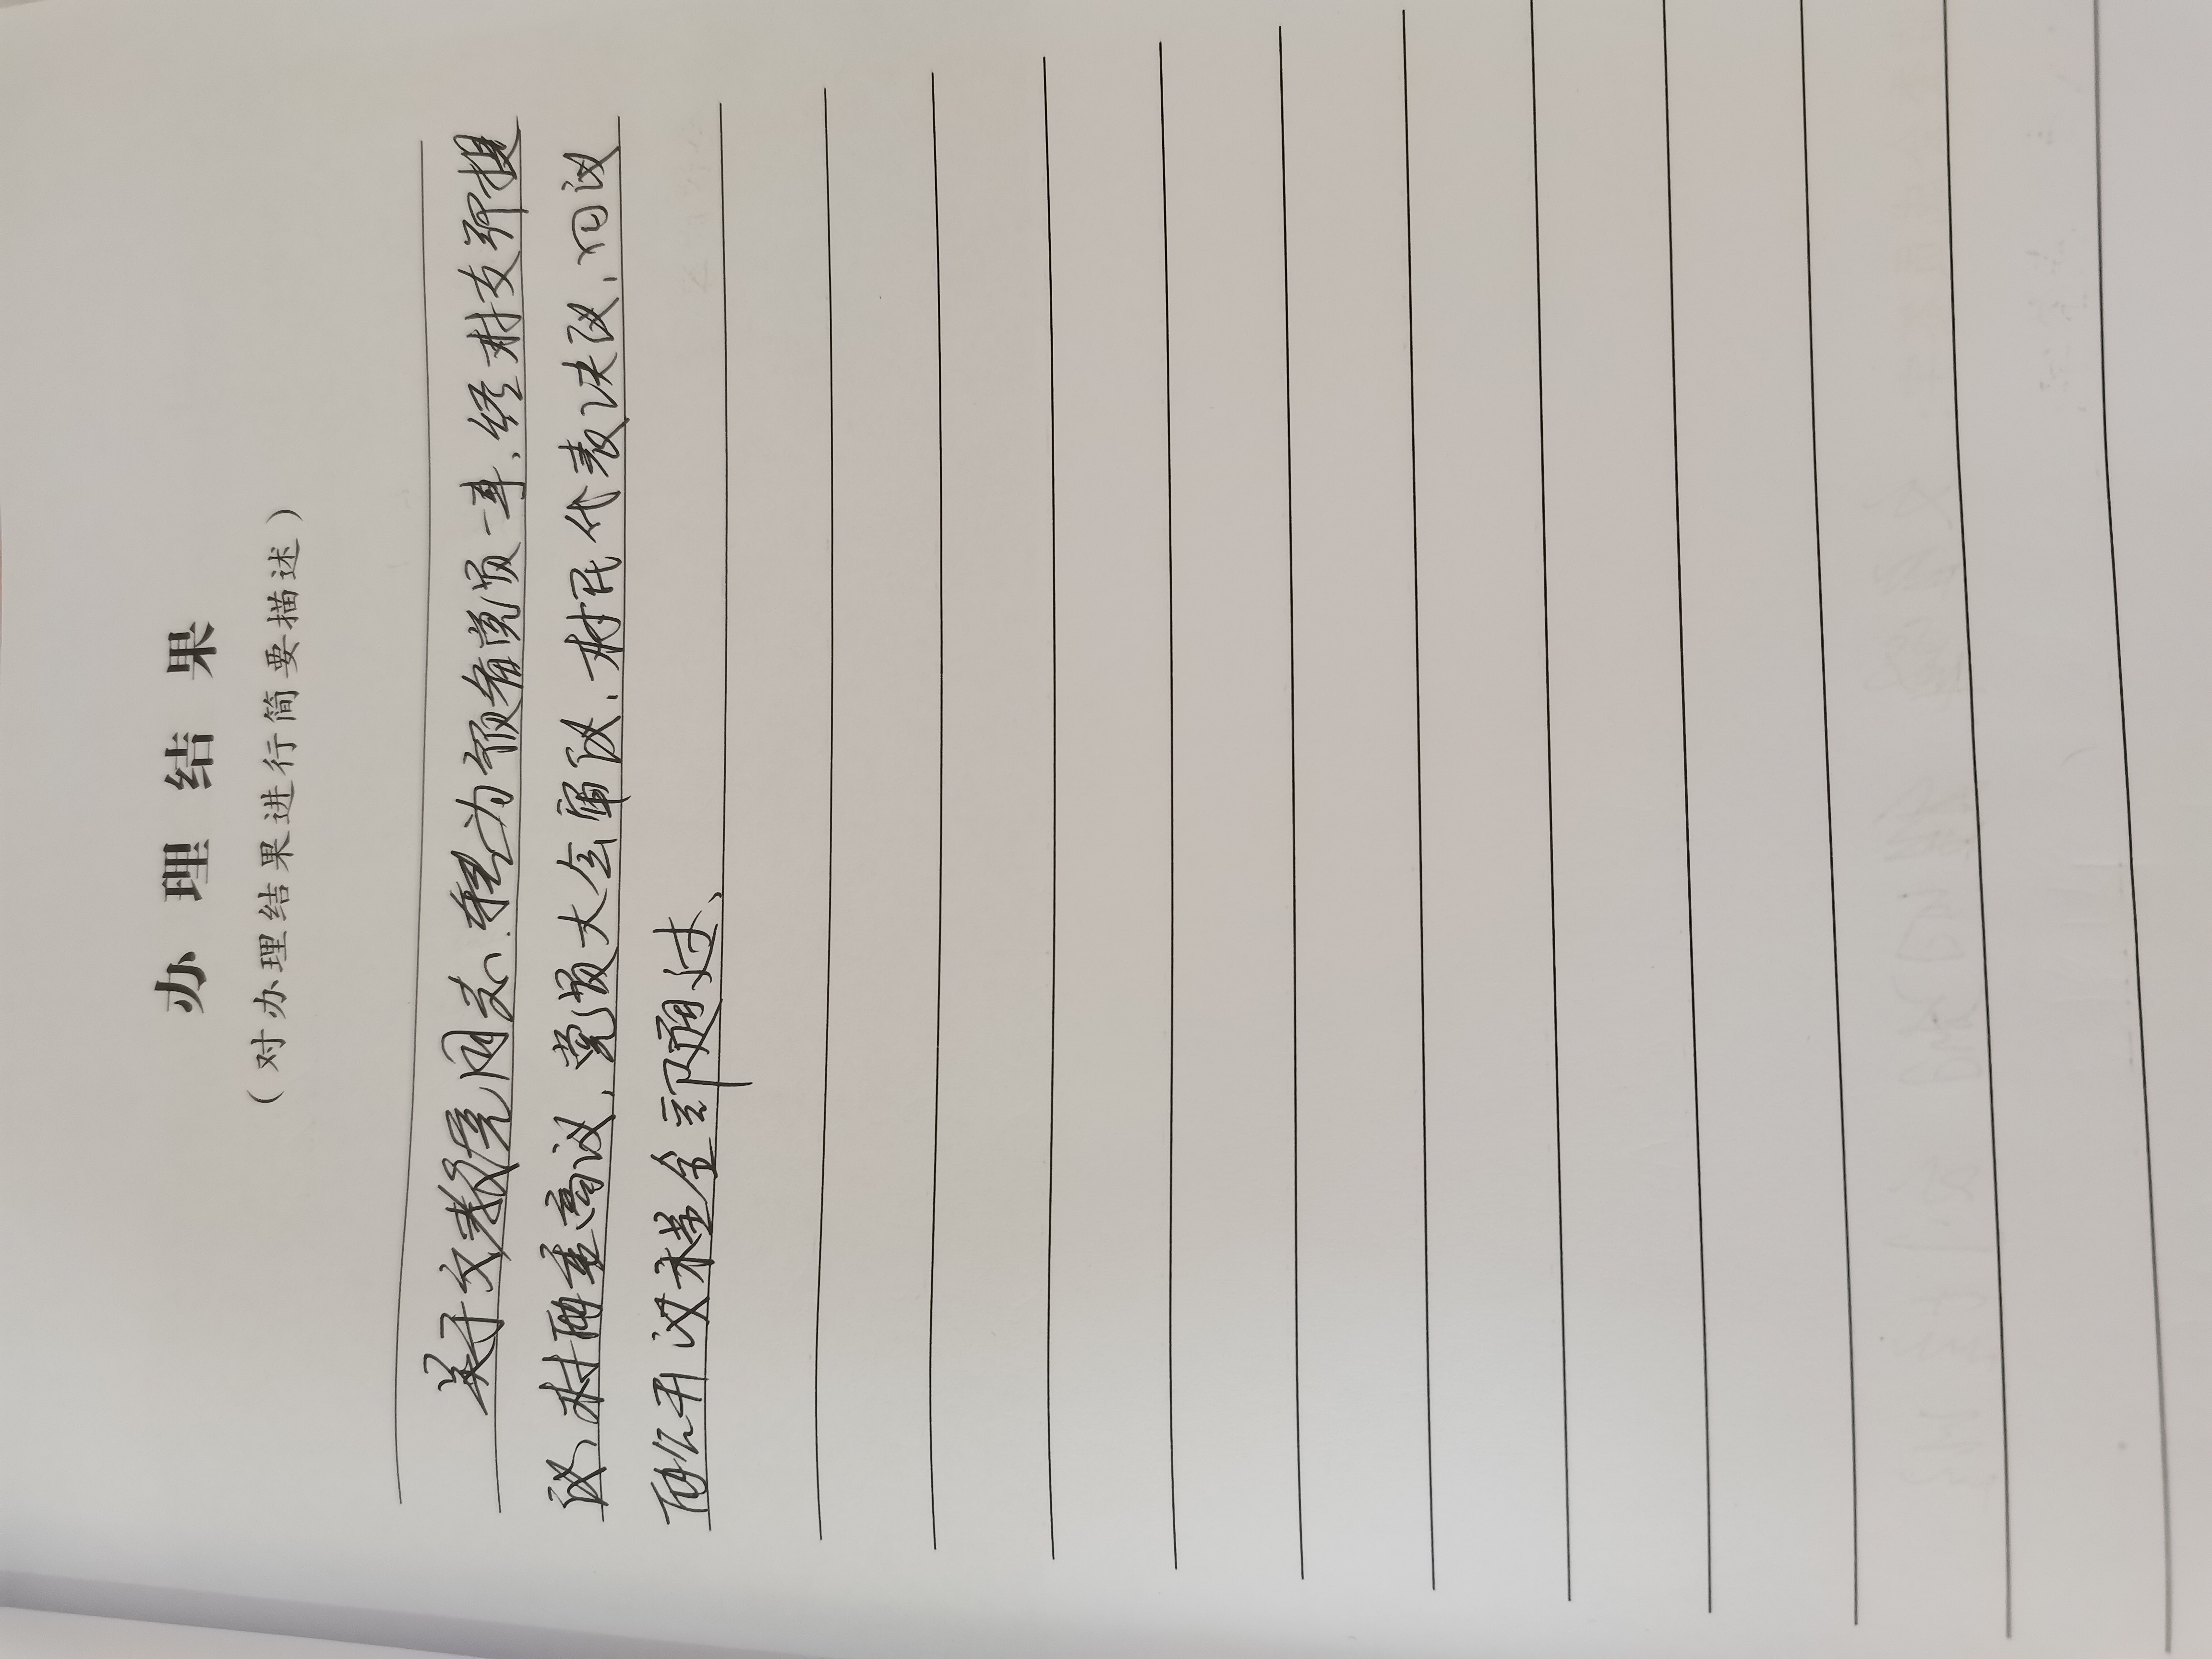 办理结果
（对办理结果进行简要描述）
关于文教侵同志、转为预备党员一事、经村支部提
议、村两委商议、党员大会审议、村民代表决议、四议
两公开议程全部通过、